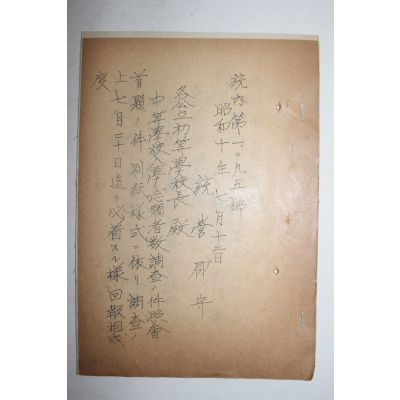 統內第一〇九五號
昭和十年七月十二日
統營郡守
各公立初等學校長殿
中等學校入學志願者數調查ノ件照會
首題ノ件別紙樣式ニ依リ調查ノ
上七月二十日迄ニ必着スル樣回報相成
度